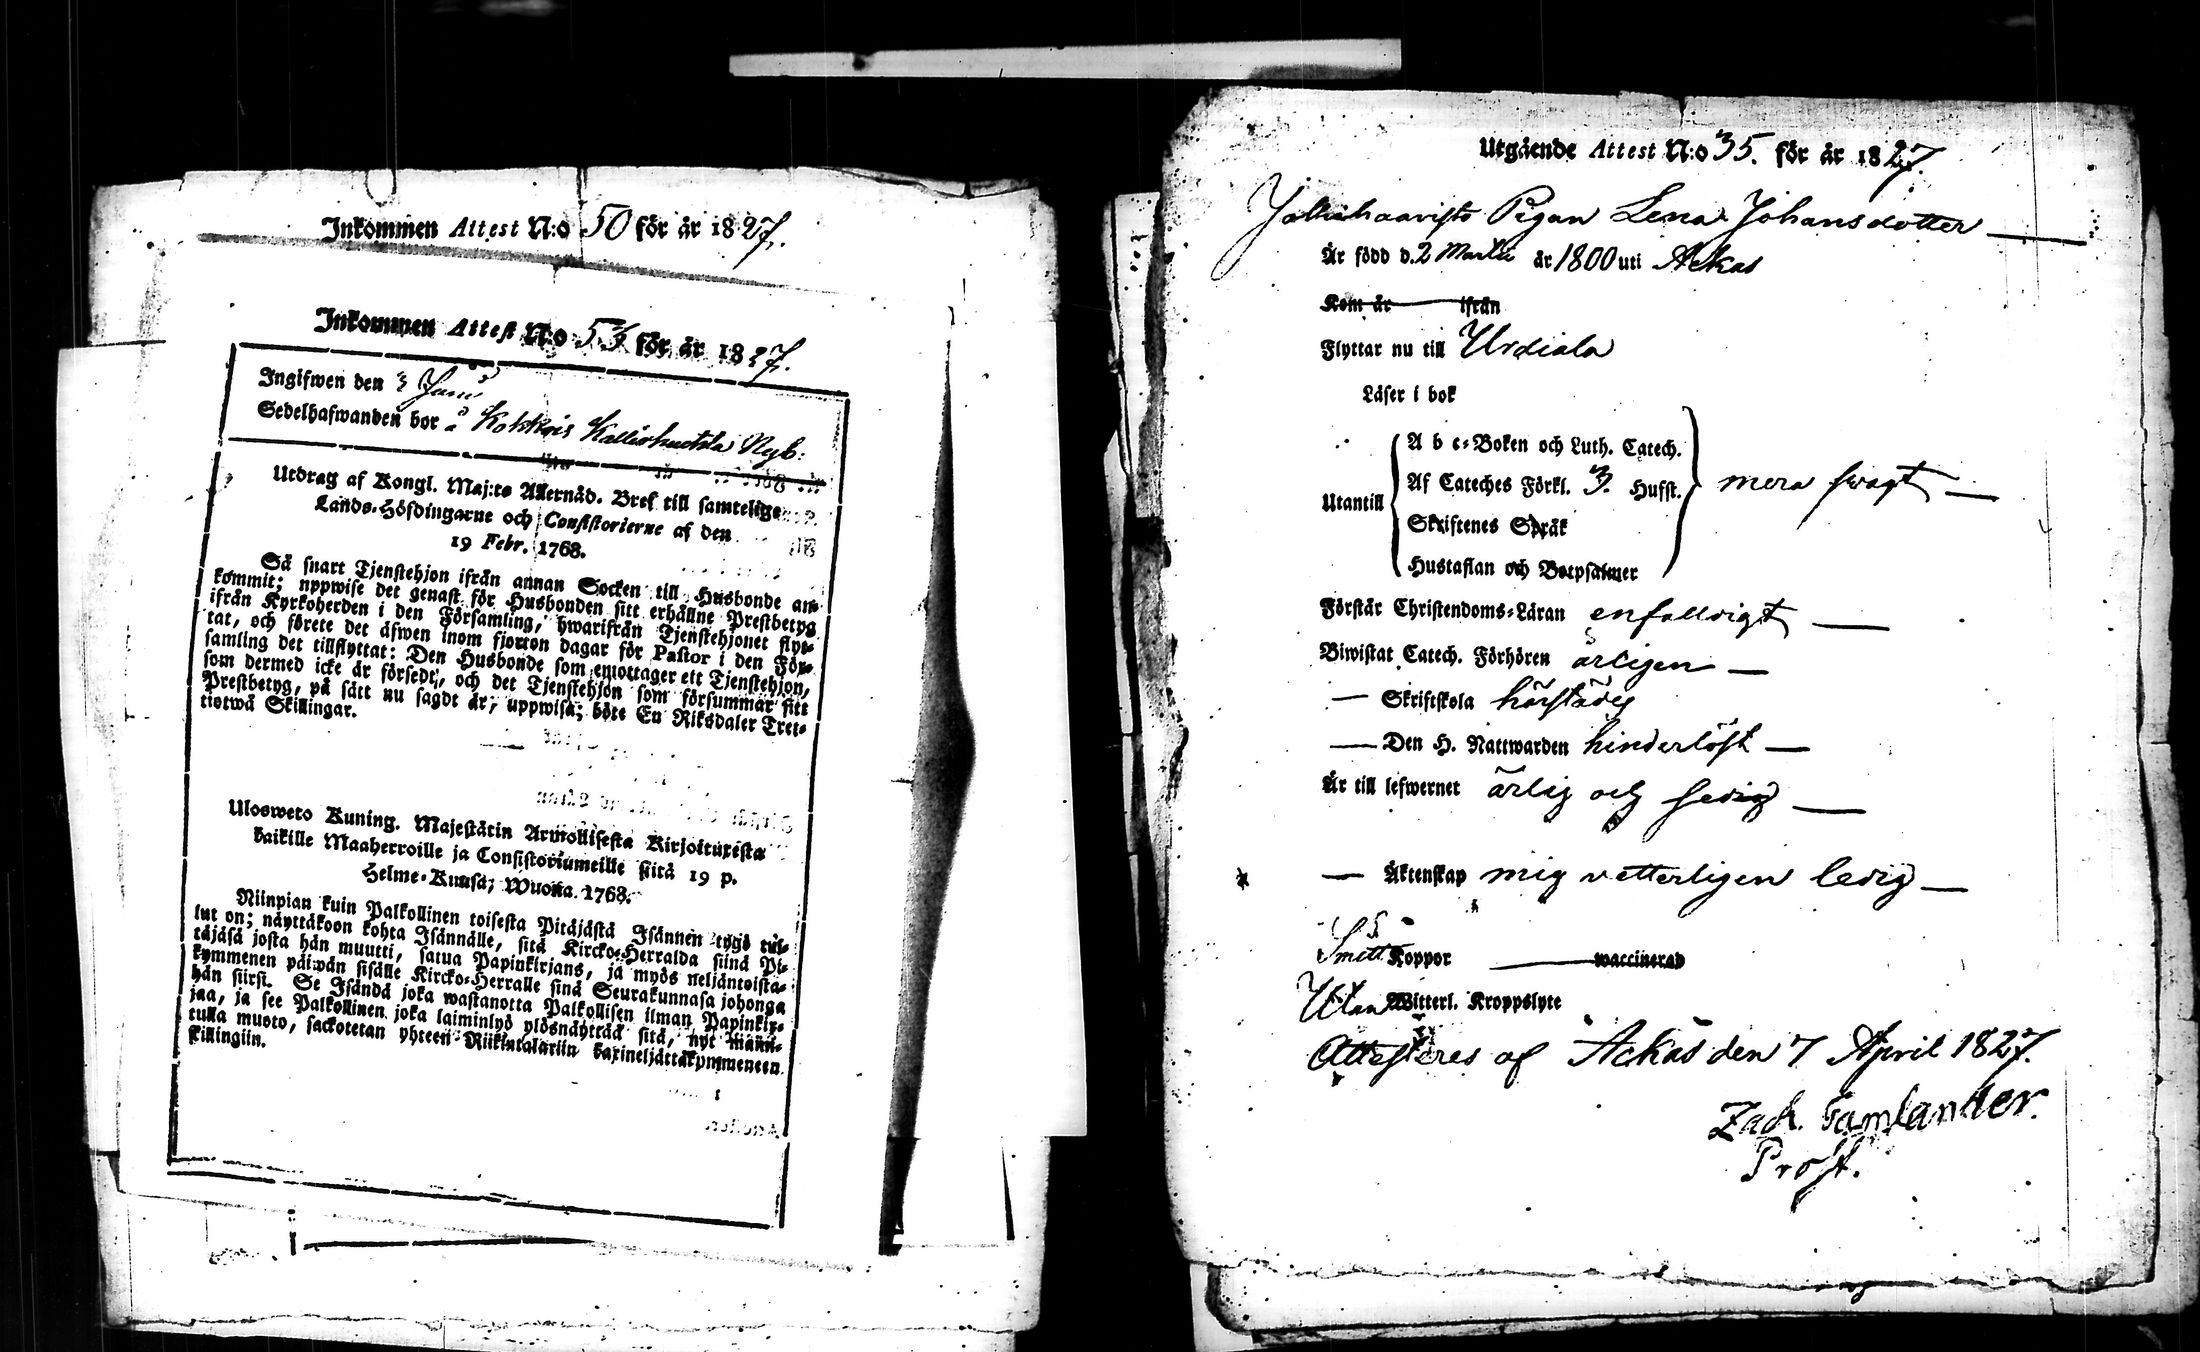 Inkommen Attest N:o 50 för år 1827.
Inkommen Attest N:o 53 för år 1827.
Ingifwen den 3 Juni
Sedelhafwanden bor å Kokkois Nyb:
Utdrag af Kongl. Maj:ts Allernåd. Bref till samtelige
Lands-Höfdingarne och Consistorierne af den
19 Febr. 1768.
Så snart Tjenstehjon ifrån annan Socken till Husbonde an-
kommit; uppwise det genast för Husbonden sitt erhållne Prestbetyg
ifrån Kyrkoherden i den Församling, hwarifrån Tjenstehjonet flyt-
tat, och förete det äfwen inom fjorton dagar för Pastor i den För-
samling det tillflyttat: Den Husbonde som emottager ett Tjenstehjon,
som dermed icke är försedt, och det Tjenstehjon som försummar sitt
Prestbetyg, på sätt nu sagdt är, uppwisa; böte En Riksdaler Tret-
tiotwå Skillingar.
Ulosweto Kuning. Majestätin Armollisesta Kirjoituxesta
kaikille Maaherroille ja Consistoriumeille siitä 19 p.
Helme-Kuusa, Wuonna 1768.
Niinpian kuin Palkollinen toisesta Pitäjästä Isännen tygö tul-
lut on; näyttäkoon kohta Isännälle, sitä Kircko-Herralda siinä Pi-
täjäsä josta hän muutti, satua Papinkirjans, ja myös neljäntoista-
kymmenen päiwän sisälle Kircko-Herralle sinä Seurakunnasa johonga
hän siirsi. Se Isändä joka wastanotta Palkollisen ilman Papinkir-
jaa, ja see Palkollinen joka laiminlyö ylösnäyttää sitä, nyt mainit-
tulla muoto, sackotetan yhteen Riikintalariin kaxineljättäkymmeneen
skillingiin.
Utgående Attest N:o 35. för år 1827.
Pigan Lena Johansdotter
Är född d. 2 Martii år 1800 uti Ackas
Kom år ifrån
Flyttar nu till Urdiala
Läser i bok
A b c-Boken och Luth. Catech.
Af Cateches Förkl. 3. Hufst.
Utantill
mera swagt
Skriftenes Språk
Hustaflan och Botpsalmer
Förstår Christendoms-Läran enfalldigt
Biwistat Catech. Förhören årligen
Skriftskola härstädes
Den H. Nattwarden hinderlöst
Är till lefwernet ärlig och sedig
Äktenskap mig vetterligen ledig
Smitt Koppor waccinerad
Utan Witterl. Kroppslyte
Attesteres af Ackas den 7 April 1827.
Zach. Gamlander.
Prost.